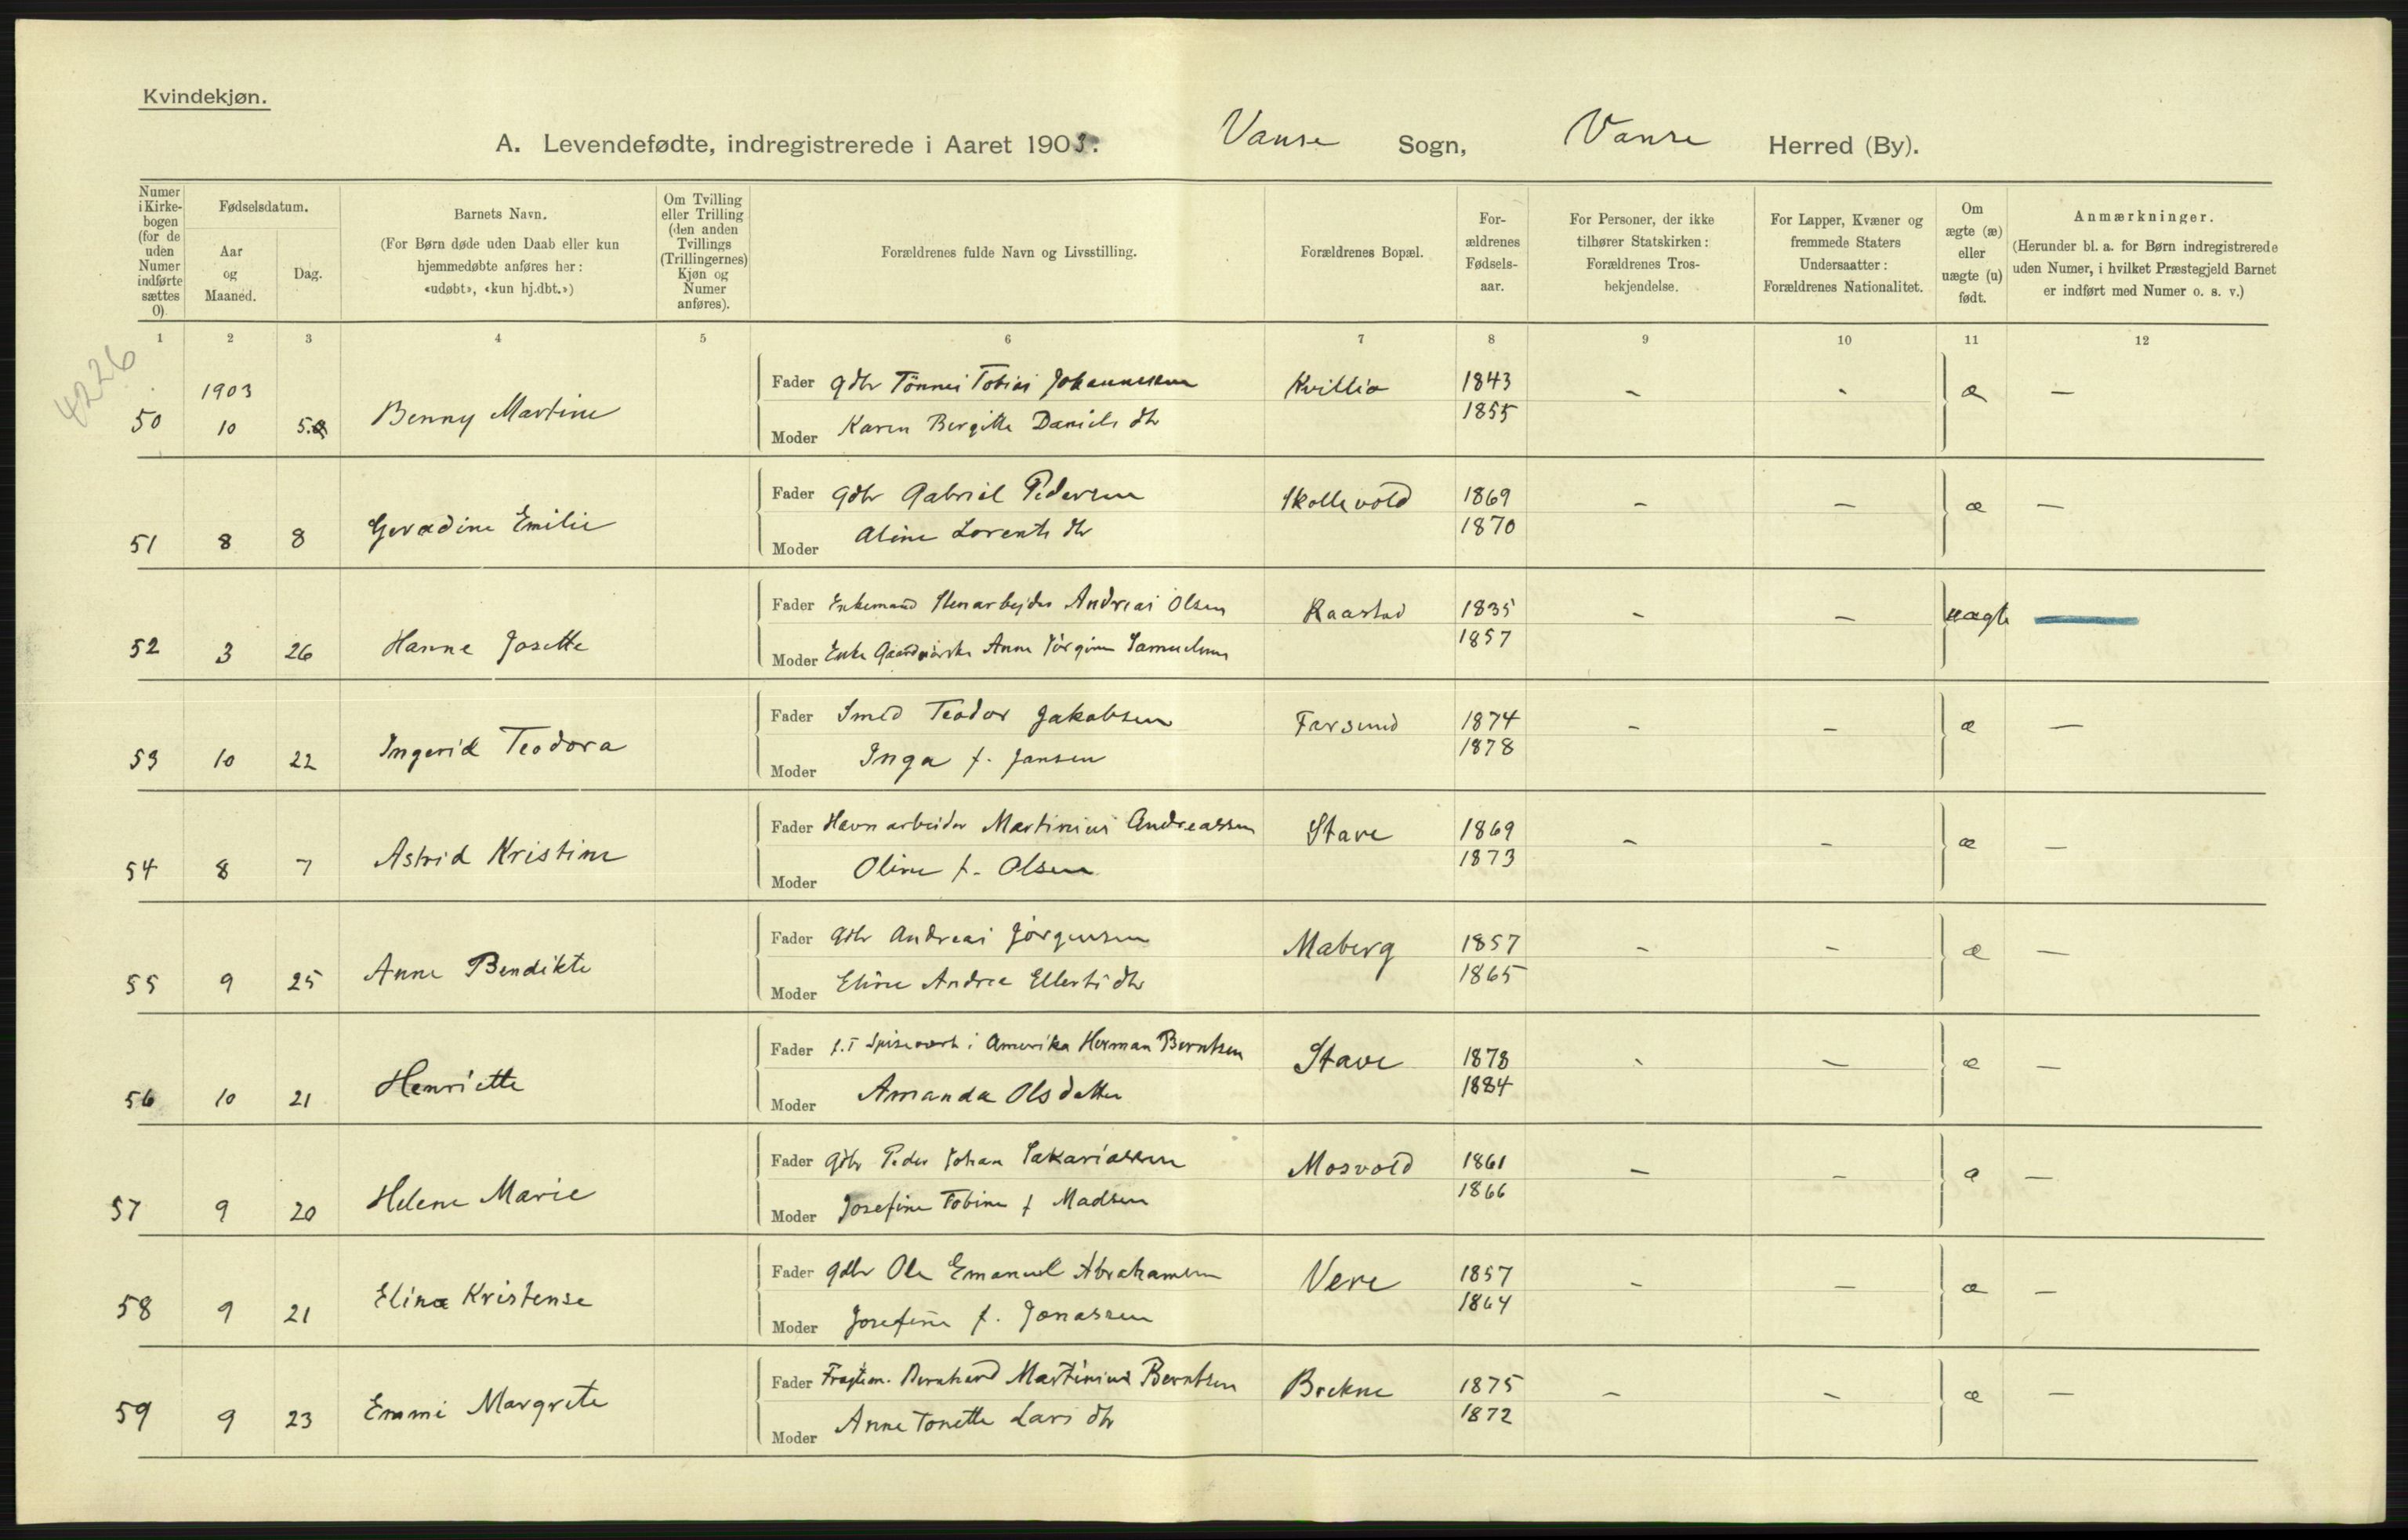 Kvindekjøn.
A. Levendefødte, indregistrerede i Aaret 1903. Vanse Sogn, Vanse Herred (By).
Numer i Kirkebogen (for de uden Numer indførte sættes 0).
Fødselsdatum.
Aar og Maaned.
Dag.
Barnets Navn.
(For Børn døde uden Daab eller kun hjemmedøbte anføres her: «udøbt», «kun hj.dbt.»)
Om Tvilling eller Trilling (den anden Tvillings (Trillingernes) Kjøn og Numer anføres).
Forældrenes fulde Navn og Livsstilling.
Forældrenes Bopæl.
Forældrenes Fødselsaar.
For Personer, der ikke tilhører Statskirken: Forældrenes Trosbekjendelse.
For Lapper, Kvæner og fremmede Staters Undersaatter: Forældrenes Nationalitet.
Om ægte (æ) eller uægte (u) født.
Anmærkninger.
(Herunder bl. a. for Børn indregistrerede uden Numer, i hvilket Præstegjeld Barnet er indført med Numer o. s. v.)
1 2 3 4 5 6 7 8 9 10 11 12
4226
1903
50 10 5. Benny Martine
Fader Gdbr Tönnes Tobias Johannessen Kvillio 1843 - - æ —
Moder Karen Bergitte Daniels dtr 1855
51 8 8 Geradine Emilie
Fader Gdbr Gabriel Pedersen Skollevold 1869 - — æ —
Moder Aline Lorents dtr 1870
52 3 26 Hanne Josette
Fader Enkemand Stenarbejder Andreas Olsen Raastad 1835 - — uægte —
Moder Enke Anne Jørgine Samuelsen 1857
53 10 22 Ingerid Teodora
Fader Smed Teodor Jakobsen Farsund 1874 - - æ —
Moder Inga f. Jansen 1878
54 8 7 Astrid Kristine
Fader Havnarbeider Martinius Andreassen Stave 1869 - - æ —
Moder Oline f. Olsen 1873
55 9 25 Anne Bendikte
Fader Gdbr Andreas Jörgensen Maberg 1857 - - æ —
Moder Eline Andrea Ellerts dtr 1865
56 10 21 Henriette
Fader f.T Spisevært i Amerika Herman Berntsen Stave 1878 - — æ —
Moder Amanda Olsdatter 1884
57 9 20 Helene Marie
Fader Gdbr Peder Johan Sakariassen Mosvold 1861 — - æ —
Moder Josefine Tobine f Madsen 1866
58 9 21 Elina Kristense
Fader Gdbr Ole Emanuel Abrahamsen Vere 1857 - — æ —
Moder Josefine f. Jonassen 1864
59 9 23 Emmi Margrete
Fader Fragtem. Bernhard Martinius Berntsen Brekne 1875 - - æ —
Moder Anne Tonette Lars dtr 1872